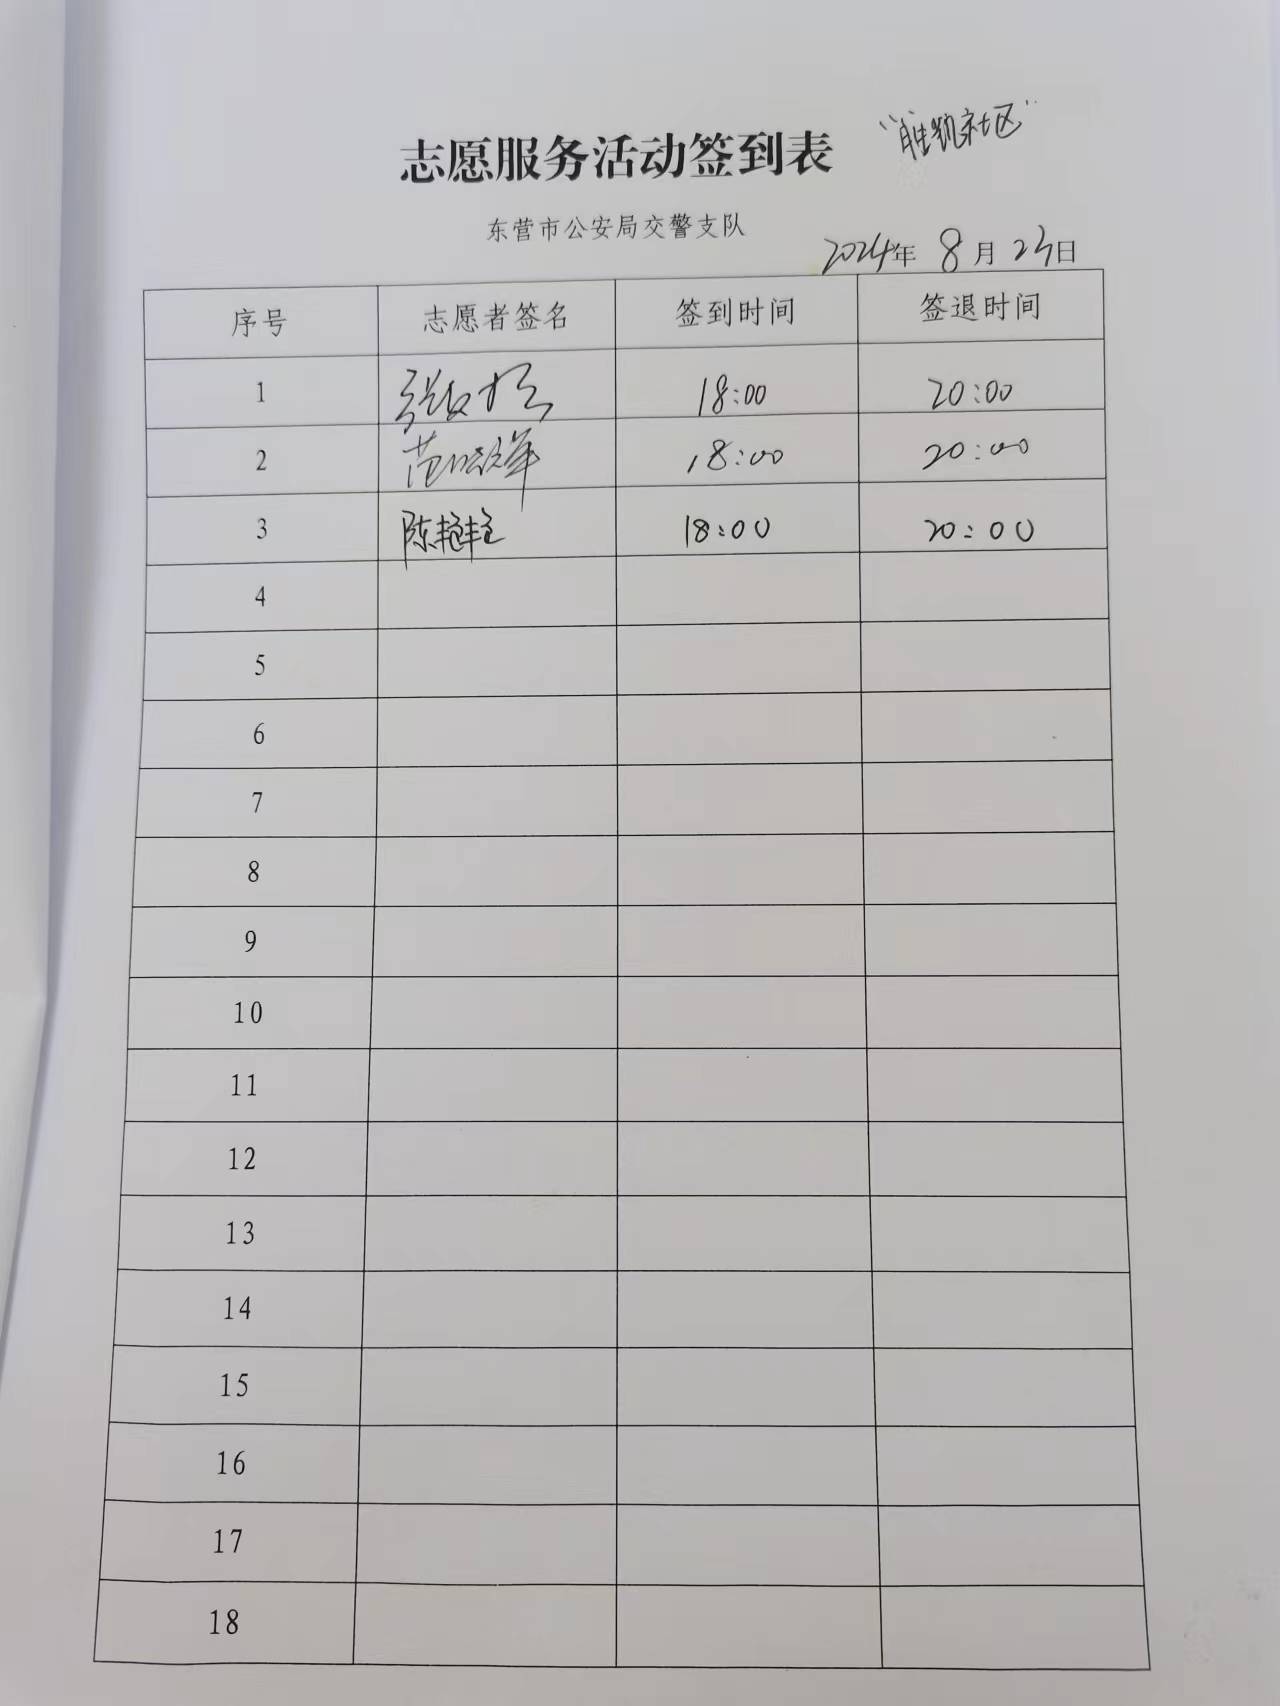 志愿服务活动签到表
"胜凯社区"
东营市公安局交警支队
2024年 8月 23日
序号 志愿者签名 签到时间 签退时间
1 18:00 20:00
2 18:00 20:00
3 陈艳艳 18:00 20:00
4
5
6
7
8
9
10
11
12
13
14
15
16
17
18